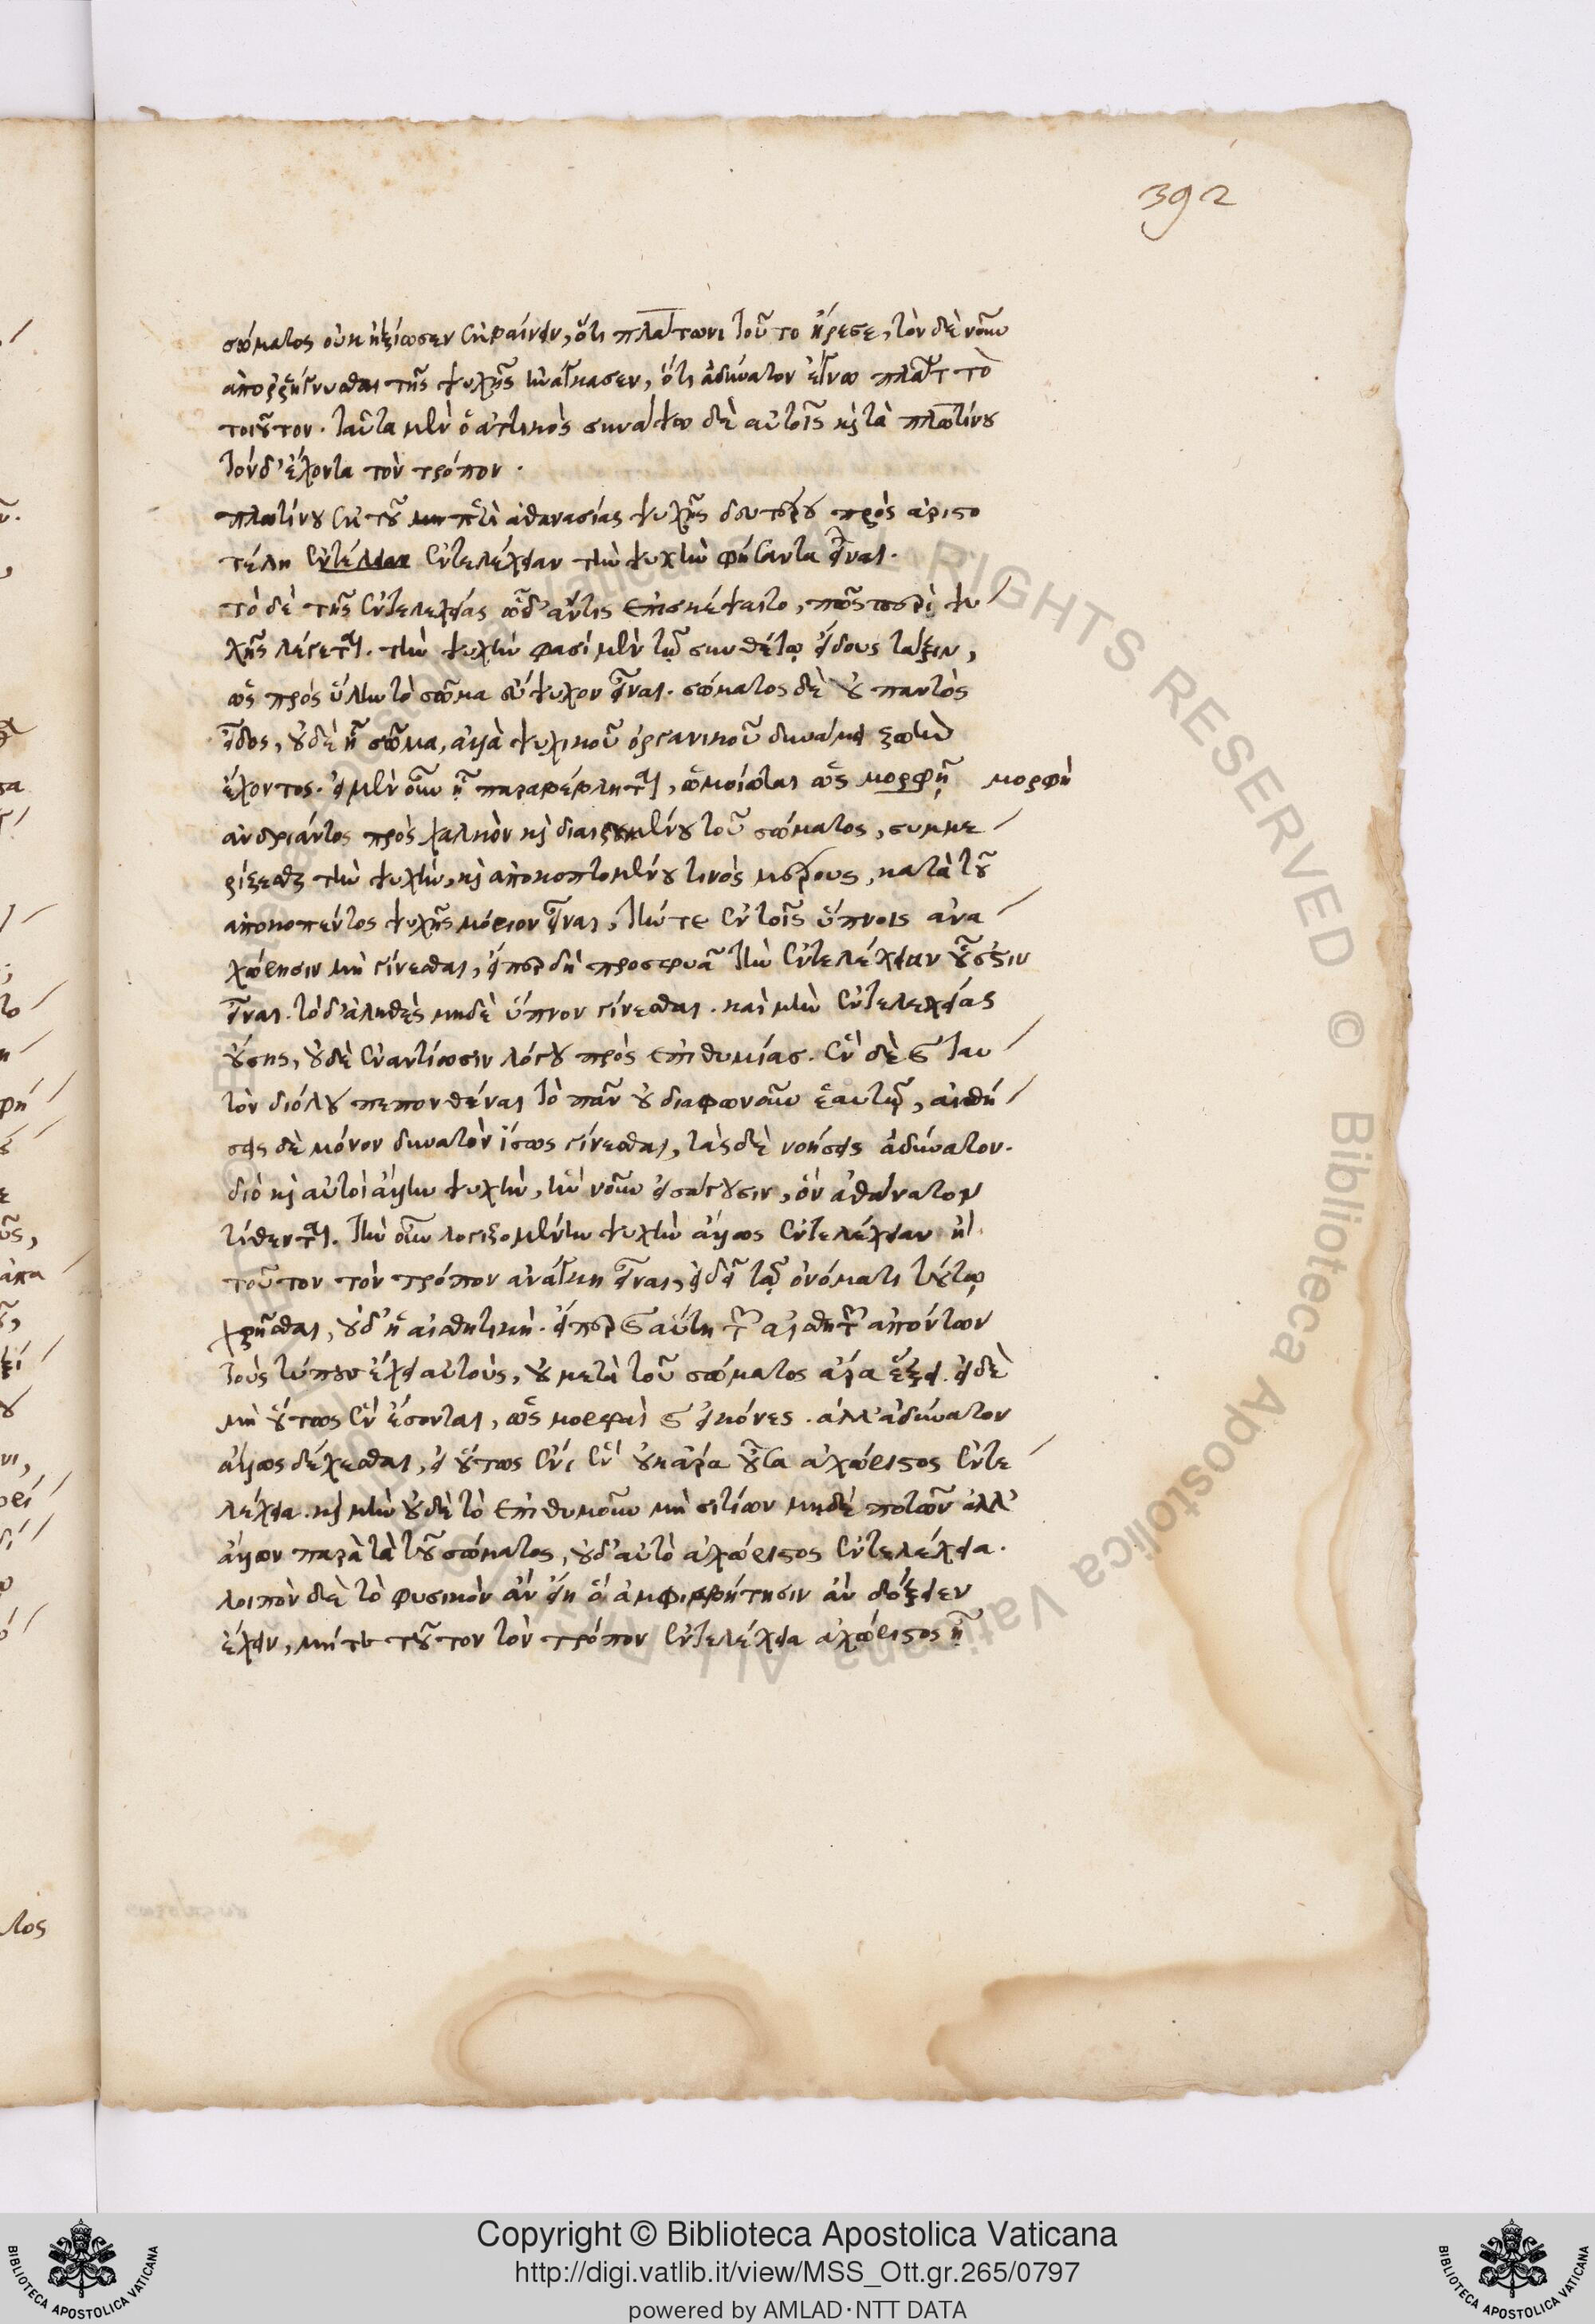 392
σώματος οὐκ ἠξίωσεν ἐκφαίνειν, ὅτι πλάτωνι τοῦτο ἤρεσε, τὸν δὲ νοῦν
ἀπορρήγνυσθαι τῆς ψυχῆς ἠνάγκασεν, ὅτι ἀδύνατον ἔγνω πλάτ τὸ
τοιοῦτον. ταῦτα μὲν ὁ ἀττικὸς συνάψω δὲ αὐτοῖς καὶ τὰ πλωτίνου
τόνδ' ἔχοντα τὸν τρόπον.
πλωτίνου ἐκ τοῦ περὶ ἀθανασίας ψυχῆς δευτέρου πρὸς ἀριστο
τέλη ἐντελέχειαν τὴν ψυχὴν φήσαντα εἶναι.
τὸ δὲ τῆς ἐντελεχείας ὧδ' ἄν τις ἐπισκέψαιτο, πῶς περὶ ψυ
χῆς λέγεται. τὴν ψυχήν φασὶ μὲν τῷ συνθέτῳ εἴδους τάξιν,
ὡς πρὸς ὕλην τὸ σῶμα ἔμψυχον εἶναι. σώματος δὲ οὐ παντὸς
εἶδος, οὐδὲ ᾗ σῶμα, ἀλλὰ ψυχικοῦ ὀργανικοῦ δυνάμει ζωὴν
ἔχοντος. εἰ μὲν οὖν ᾗ παραβέβληται, ὡμοίωται ὡς μορφῇ μορφὴ
ἀνδριάντος πρὸς χαλκὸν καὶ διαιρουμένου τοῦ σώματος, συμμε
ρίζεσθαι τὴν ψυχήν, καὶ ἀποκοπτομένου τινὸς μέρους, κατὰ τοῦ
ἀποκοπέντος ψυχῆς μόριον εἶναι, τήν τε ἐν τοῖς ὕπνοις ἀνα
χώρησιν μὴ γίνεσθαι, εἴπερ δὴ προσφυᾶ τὴν ἐντελέχειαν οὗ ἐστιν
εἶναι. τὸ δ' ἀληθὲς μηδὲ ὕπνον γίνεσθαι. καὶ μὴν ἐντελεχείας
οὔσης, οὐδὲ ἐναντίωσιν λόγου πρὸς ἐπιθυμίας. ἓν δὲ καὶ ταυ
τὸν δι' ὅλου πεπονθέναι τὸ πᾶν οὐ διαφωνοῦν ἑαυτῷ, αἰσθή
σεις δὲ μόνον δυνατὸν ἴσως γίνεσθαι, τὰς δὲ νοήσεις ἀδύνατον.
διὸ καὶ αὐτοὶ ἄλλην ψυχὴν, ἢ νοῦν εἰσάγουσιν, ὃν ἀθάνατον
τίθενται. τὴν οὖν λογιζομένην ψυχὴν ἄλλως ἐντελέχειαν ἢ
τοῦτον τὸν τρόπον ἀνάγκη εἶναι, εἰ δεῖ τῷ ὀνόματι τούτῳ
χρῆσθαι, οὐδ' ἡ αἰσθητική. εἴπερ καὶ αὕτη τῶν αἰσθητῶν ἀπόντων
τοὺς τύπους ἔχει αὐτοὺς, οὐ μετὰ τοῦ σώματος ἄρα ἕξει. εἰ δὲ
μὴ οὕτως ἐν ἔσονται, ὡς μορφαὶ καὶ εἰκόνες. ἀλλ' ἀδύνατον
ἄλλως δέχεσθαι, εἰ οὕτως ἐν οὐκ ἄρα οὖσα ἀχώριστος ἐντε
λέχεια. καὶ μὴν οὐδὲ τὸ ἐπιθυμοῦν μὴ σιτίων μηδὲ ποτῶν ἀλλ'
ἄλλων παρὰ τὰ τοῦ σώματος, οὐδ' αὐτὸ ἀχώριστος ἐντελέχεια.
λοιπὸν δὲ τὸ φυσικὸν ἂν εἴη ὃ ἀμφισβήτησιν ἂν δόξειεν
ἔχειν, μήτι τοῦτον τὸν τρόπον ἐντελέχεια ἀχώριστος ᾖ
Copyright © Biblioteca Apostolica Vaticana
http://digi.vatlib.it/view/MSS_Ott.gr.265/0797
powered by AMLAD·NTT DATA